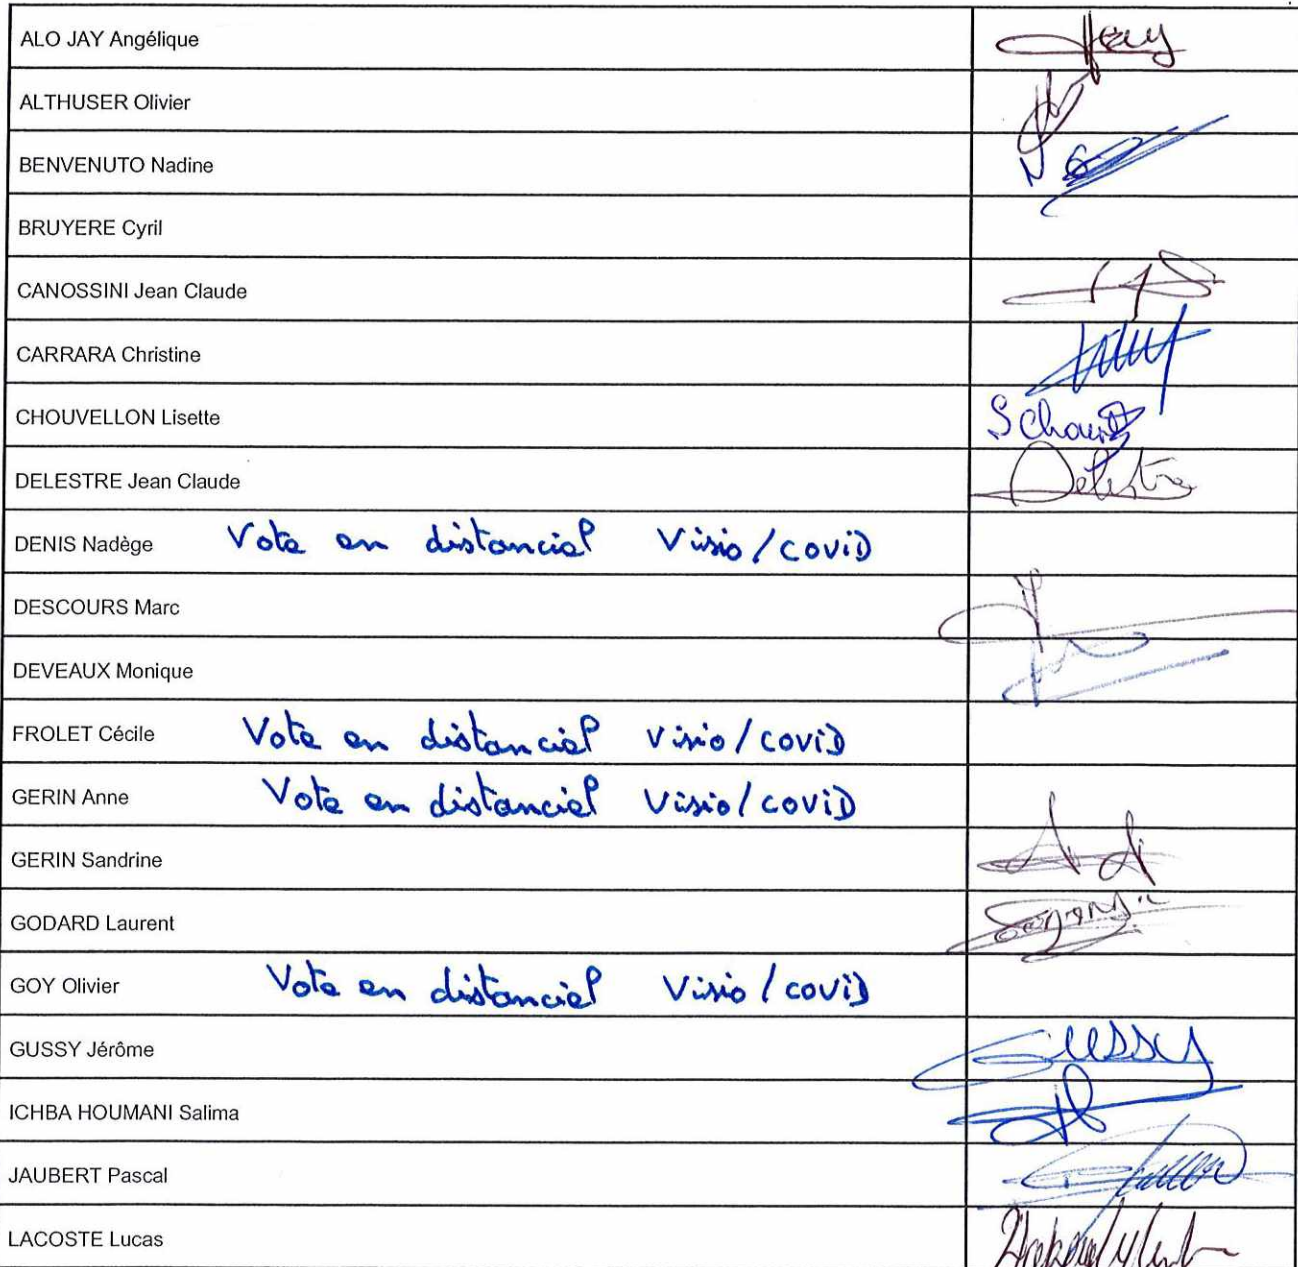 ALO JAY Angélique
ALTHUSER Olivier
BENVENUTO Nadine
BRUYERE Cyril
CANOSSINI Jean Claude
CARRARA Christine
CHOUVELLON Lisette
DELESTRE Jean Claude Delestre
DENIS Nadège Vote en distanciel Visio/coviD
DESCOURS Marc
DEVEAUX Monique
FROLET Cécile Vote en distanciel Visio/coviD
GERIN Anne Vote en distanciel Visio/coviD
GERIN Sandrine
GODARD Laurent
GOY Olivier Vote en distanciel Visio/coviD
GUSSY Jérôme GUSSY
ICHBA HOUMANI Salima
JAUBERT Pascal
LACOSTE Lucas